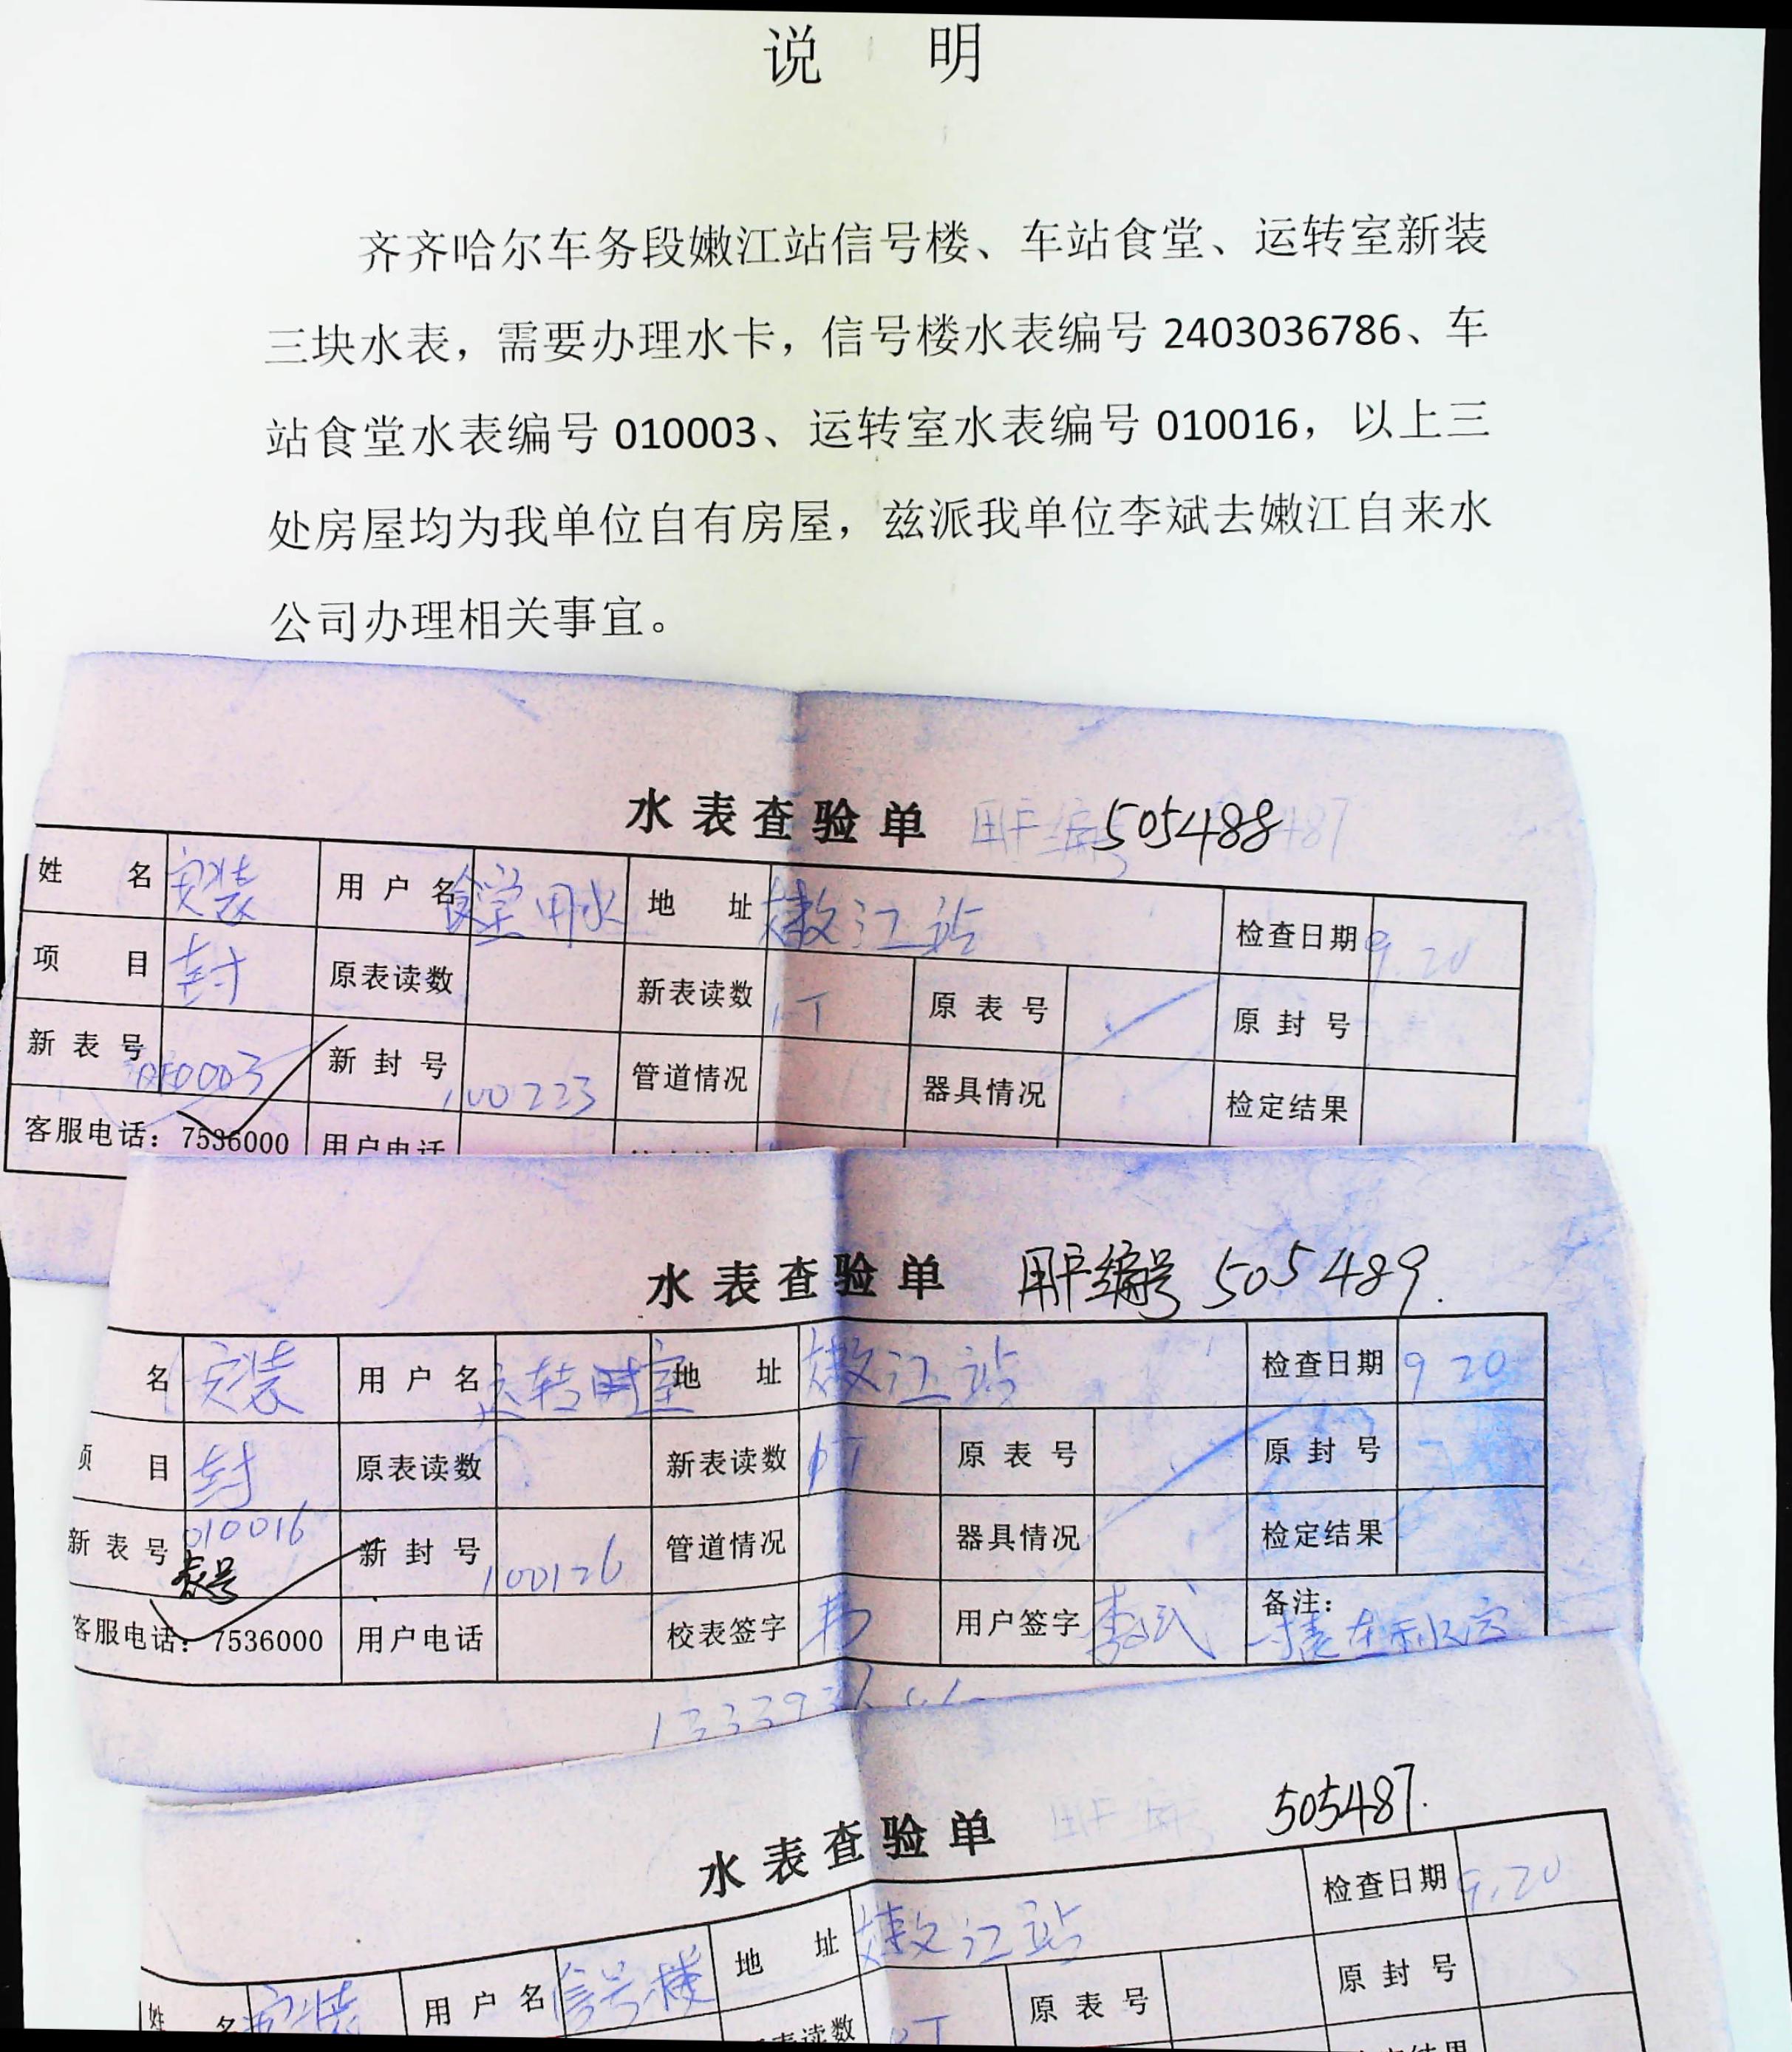 说 明
齐齐哈尔车务段嫩江站信号楼、车站食堂、运转室新装
三块水表，需要办理水卡，信号楼水表编号 2403036786、车
站食堂水表编号 010003、运转室水表编号 010016，以上三
处房屋均为我单位自有房屋，兹派我单位李斌去嫩江自来水
公司办理相关事宜。
水表查验单 505488
姓 名 安装 用户名 食堂用水 地 址 嫩江站 检查日期 9.20
项 目 封 原表读数 新表读数 原表号 原封号
新表号 新封号 100223 管道情况 器具情况 检定结果
客服电话：7536000 用户电话
水表查验单 用户编号 505489.
名 安装 用户名 运转室 地 址 嫩江站 检查日期 9 20
项 目 封 原表读数 新表读数 原表号 原封号
新表号 010016 表号 新封号 100126 管道情况 器具情况 检定结果
客服电话：7536000 用户电话 校表签字 用户签字 李斌 备注：
水表查验单 505487.
姓 名 安装 用户名 信号楼 地 址 嫩江站 检查日期 9.20
表读数 原表号 原封号